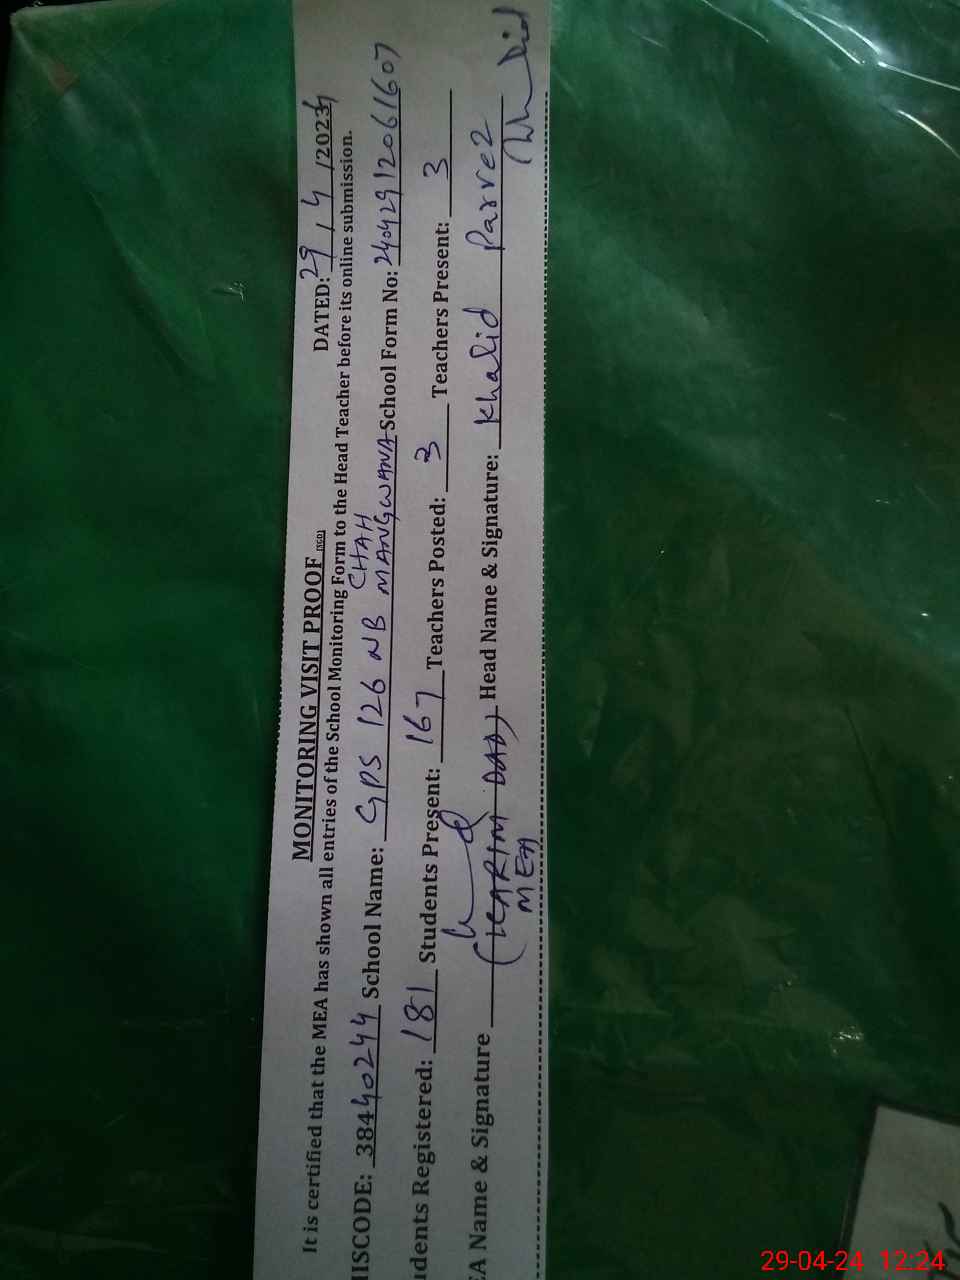 MONITORING VISIT PROOF (SGD)
DATED: 29 / 4 /2024
It is certified that the MEA has shown all entries of the School Monitoring Form to the Head Teacher before its online submission.
HISCODE: 38440244 School Name: GPS 126 NB CHAH MANGWANA School Form No: 24042912061607
udents Registered: 181 Students Present: 167 Teachers Posted: 3 Teachers Present: 3
EA Name & Signature (KARIM DAD) Head Name & Signature: Khalid Parvez
MEA
29-04-24 12:24